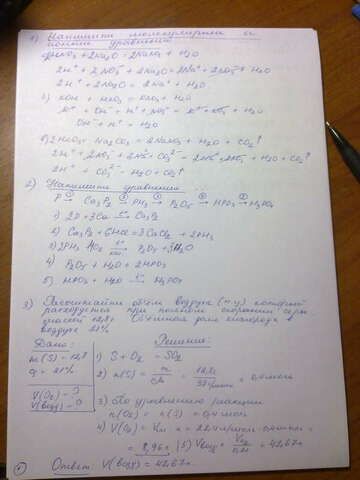 1) Написать молекулярные и
ионные уравнения
а) 2HNO3 + Na2O = 2NaNO3 + H2O
2H+ + 2NO3- + Na2O = 2Na+ + 2NO3- + H2O
2H+ + Na2O = 2Na+ + H2O
б) KOH + HNO3 = KNO3 + H2O
K+ + OH- + H+ + NO3- = K+ + NO3- + H2O
OH- + H+ = H2O
в) 2HNO3 + Na2CO3 = 2NaNO3 + H2O + CO2↑
2H+ + 2NO3- + 2Na+ + CO3 2- = 2Na+ + 2NO3- + H2O + CO2↑
2H+ + CO3 2- = H2O + CO2↑
2) Написать уравнения
P → Ca3P2 → PH3 → P2O5 → HPO3 → H3PO4
1) 2P + 3Ca = Ca3P2
2) Ca3P2 + 6HCl = 3CaCl2 + 2PH3
3) 2PH3 + 4O2 = P2O5 + 3H2O
4) P2O5 + H2O = 2HPO3
5) HPO3 + H2O = H3PO4
3) Рассчитайте объём воздуха (н.у) который
расходуется при полном сгорании серы
массой 12,8г. Объёмная доля кислорода в
воздухе 21%
Дано:
m(S) = 12,8
φ = 21%
V(O2) - ?
V(возд) - ?
Решение:
1) S + O2 = SO2
2) n(S) = m/M = 12,8г / 32г/моль = 0,4 моль
3) По уравнению реакции
n(O2) = n(S) = 0,4 моль
4) V(O2) = Vm · n = 22,4 л/моль · 0,4 моль =
= 8,96 л | 5) Vвозд = VO2 / 0,21 = 42,67 л
Ответ V(возд) = 42,67л